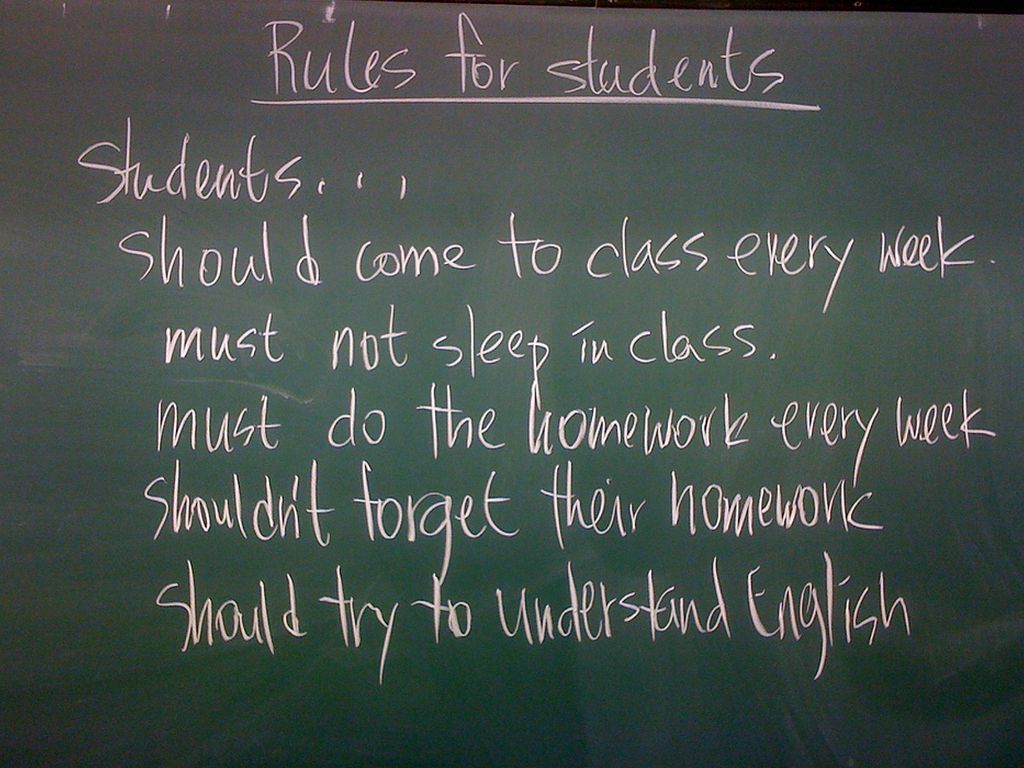 Rules for students
Students...
should come to class every week.
must not sleep in class.
must do the homework every week
shouldn't forget their homework
should try to understand English